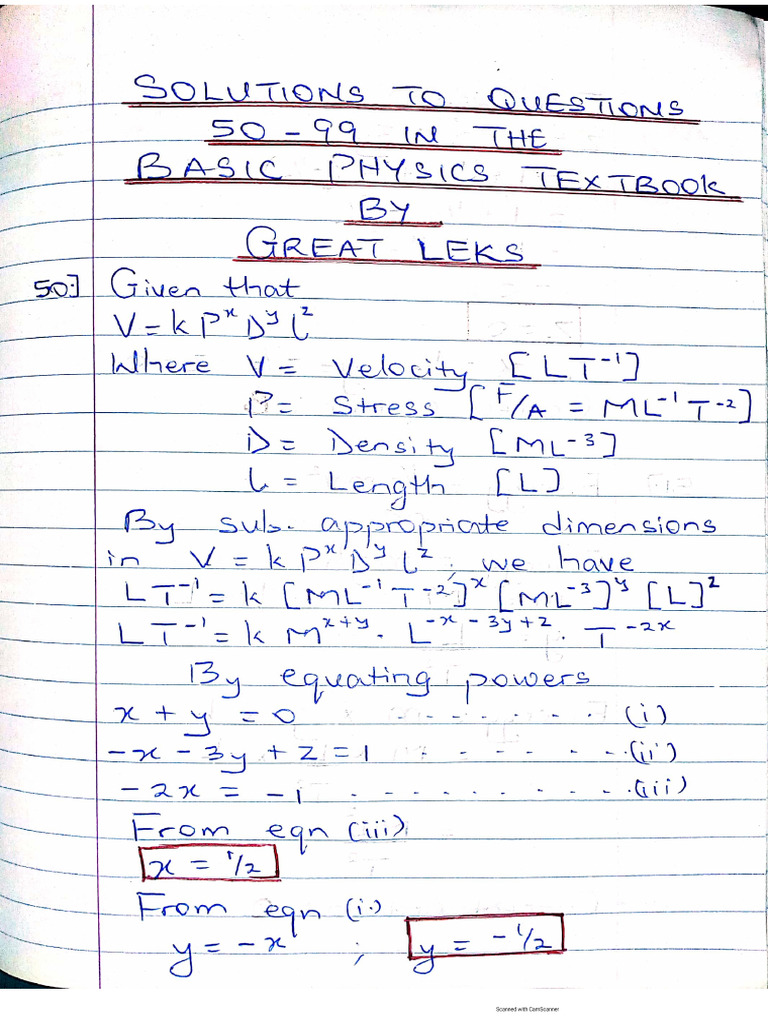 SOLUTIONS TO QUESTIONS
50 - 99 IN THE
BASIC PHYSICS TEXTBOOK
BY
GREAT LEKS
50] Given that
V = k Pˣ Dʸ lᶻ
Where V = Velocity [LT⁻¹]
P = Stress [F/A = ML⁻¹T⁻²]
D = Density [ML⁻³]
l = Length [L]
By sub. appropriate dimensions
in V = k Pˣ Dʸ lᶻ, we have
LT⁻¹ = k [ML⁻¹T⁻²]ˣ [ML⁻³]ʸ [L]ᶻ
LT⁻¹ = k Mˣ⁺ʸ · L⁻ˣ⁻³ʸ⁺ᶻ · T⁻²ˣ
By equating powers
x + y = 0 - - - - - - - (i)
-x - 3y + z = 1 - - - - - - - (ii)
-2x = -1 - - - - - - - - - - (iii)
From eqn (iii)
x = 1/2
From eqn (i)
y = -x ; y = -1/2
Scanned with CamScanner